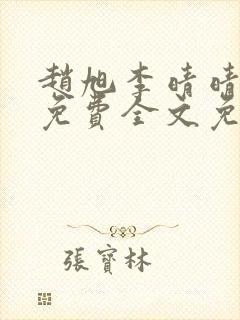 趙旭李晴晴
免費全文免
張寶林